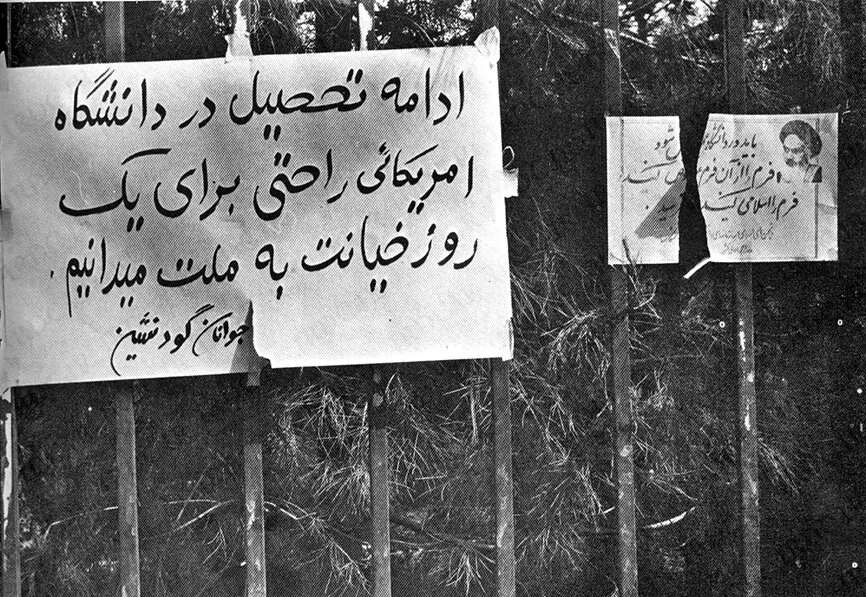 ادامه تحصیل در دانشگاه
امریکائی راحتی برای یک
روز خیانت به ملت میدانیم.
جوانان گودنشین
باید در دانشگاه شود
فرم را از آن فرم کنید
فرم را اسلامی کنید